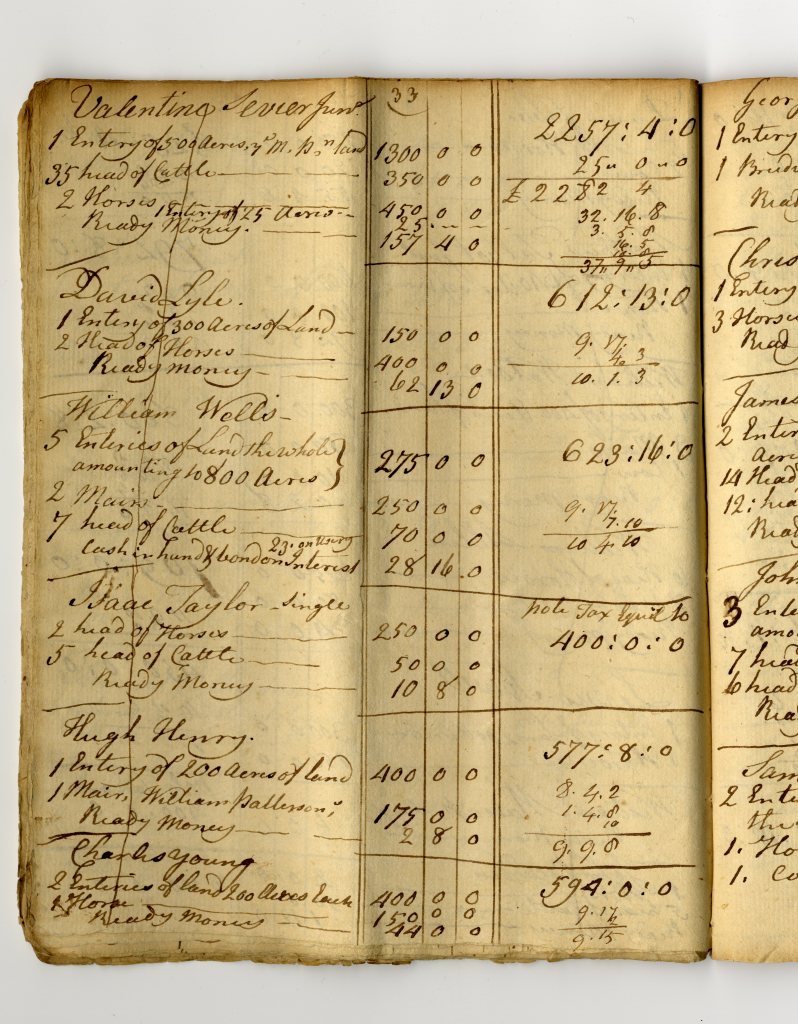 33
Valentine Sevier Junr. 2257:4:0
1 Entery of 500 Acres, land 1300 0 0
35 head of Cattle 350 0 0 25 " 0 " 0
£ 2282 4
2 Horses 450 0 0 32. 16. 8
1 Entery of 25 Acres 25 - - 3. 5. 8
Ready Money. 157 4 0 16. 5
37 " 9 " 5
David Lyle. 612:13:0
1 Entery of 300 Acres of Land 150 0 0
2 Head of Horses 400 0 0 9. 17.
4. 3
Ready Money 62 13 0 10. 1. 3
William Wells
5 Enteries of Land the whole 623:16:0
amounting to 800 Acres } 275 0 0
2 Mairs 250 0 0 9. 17.
7. 10
7 head of Cattle 70 0 0 10 4. 10
23. on Usery
Cash in hand & bond on Interest 28 16 0
Isaac Taylor - Single note Tax Equil to
2 head of Horses 250 0 0 400:0:0
5 head of Cattle 50 0 0
Ready Money 10 8 0
Hugh Henry. 577:8:0
1 Entery of 200 Acres of land 400 0 0
1 Mair, William Patterson's 175 0 0 8. 4. 2
1. 4. 8
10
Ready Money 2 8 0 9. 9. 8
Charles Young 594:0:0
2 Enteries of land 200 Acres Each 400 0 0
1 Horse 150 0 0 9. 17
Ready Money 44 0 0 9. 15
Geor
1 Entery
1
Read
Chris
1 Entery
3 Horses
Read
James
2 Enter
acre
14 Head
12: hea
Read
John
3 Ente
amo
7 head
6 head
Rea
Sam
2 Ente
the
1. Ho
1. Co